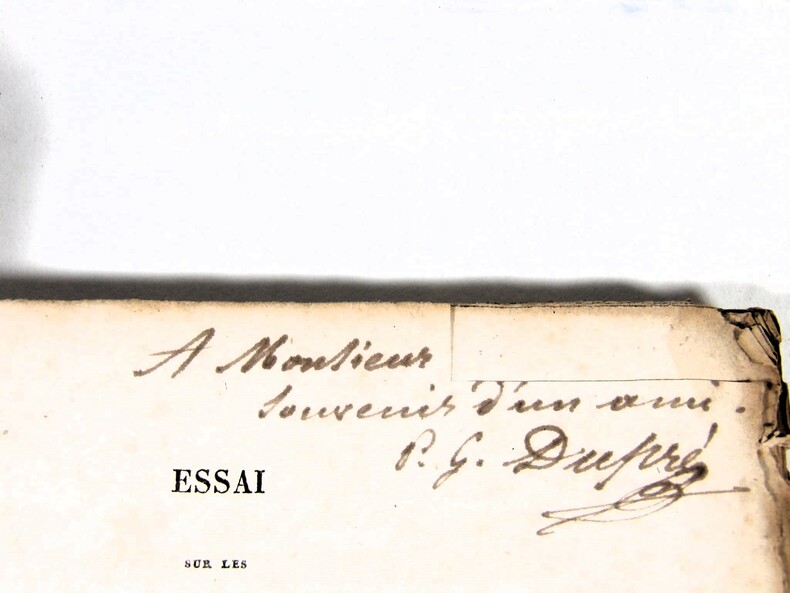 A Monsieur
souvenir d'un ami.
P. G. Dupré
ESSAI
SUR LES